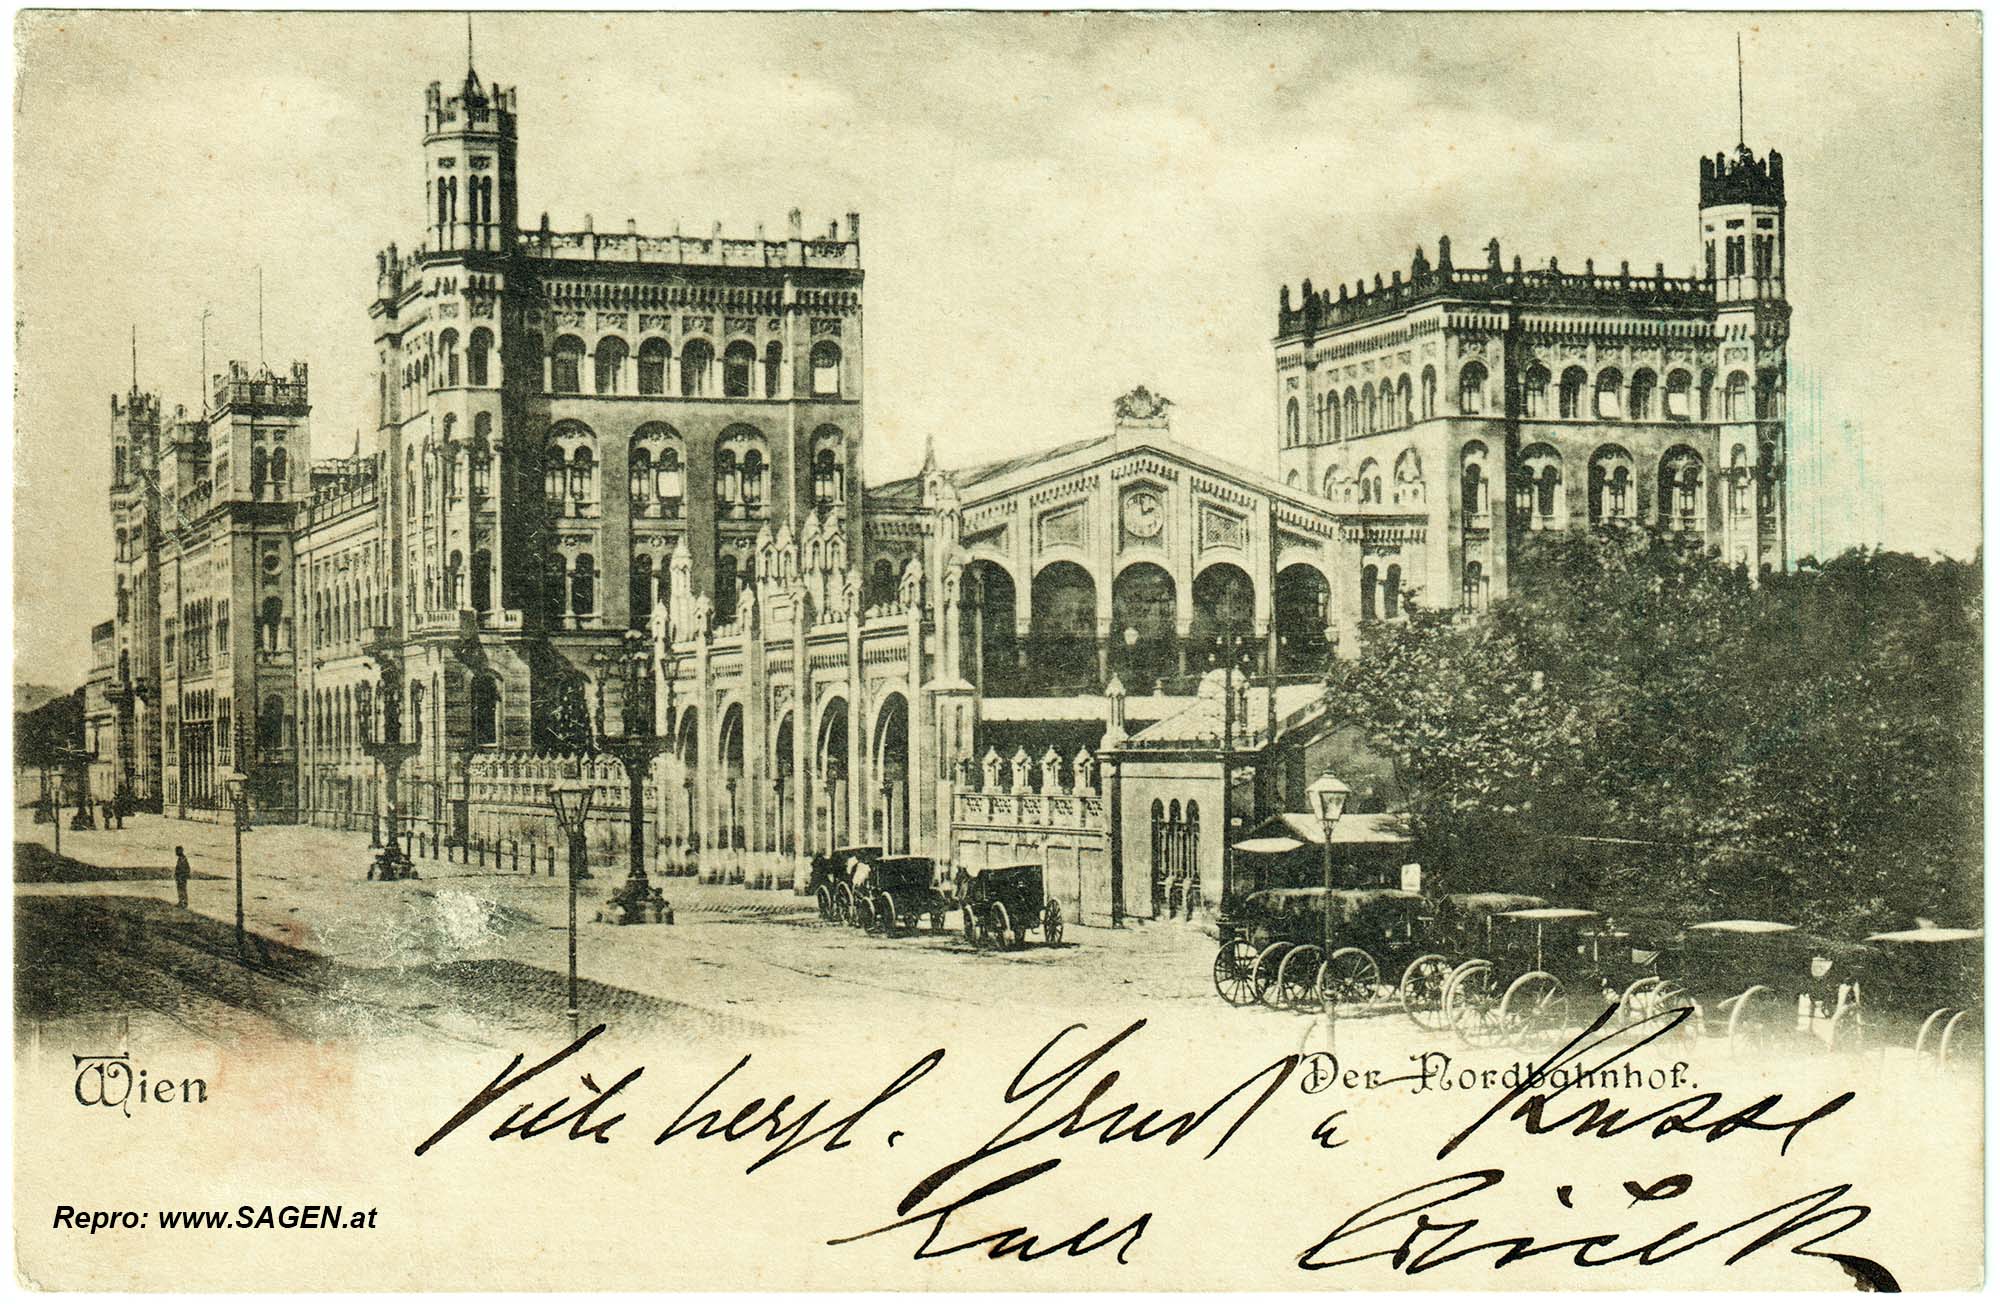 Wien
Der Nordbahnhof.
Viele herzl. Gruß u Küsse
Euer
Repro: www.SAGEN.at